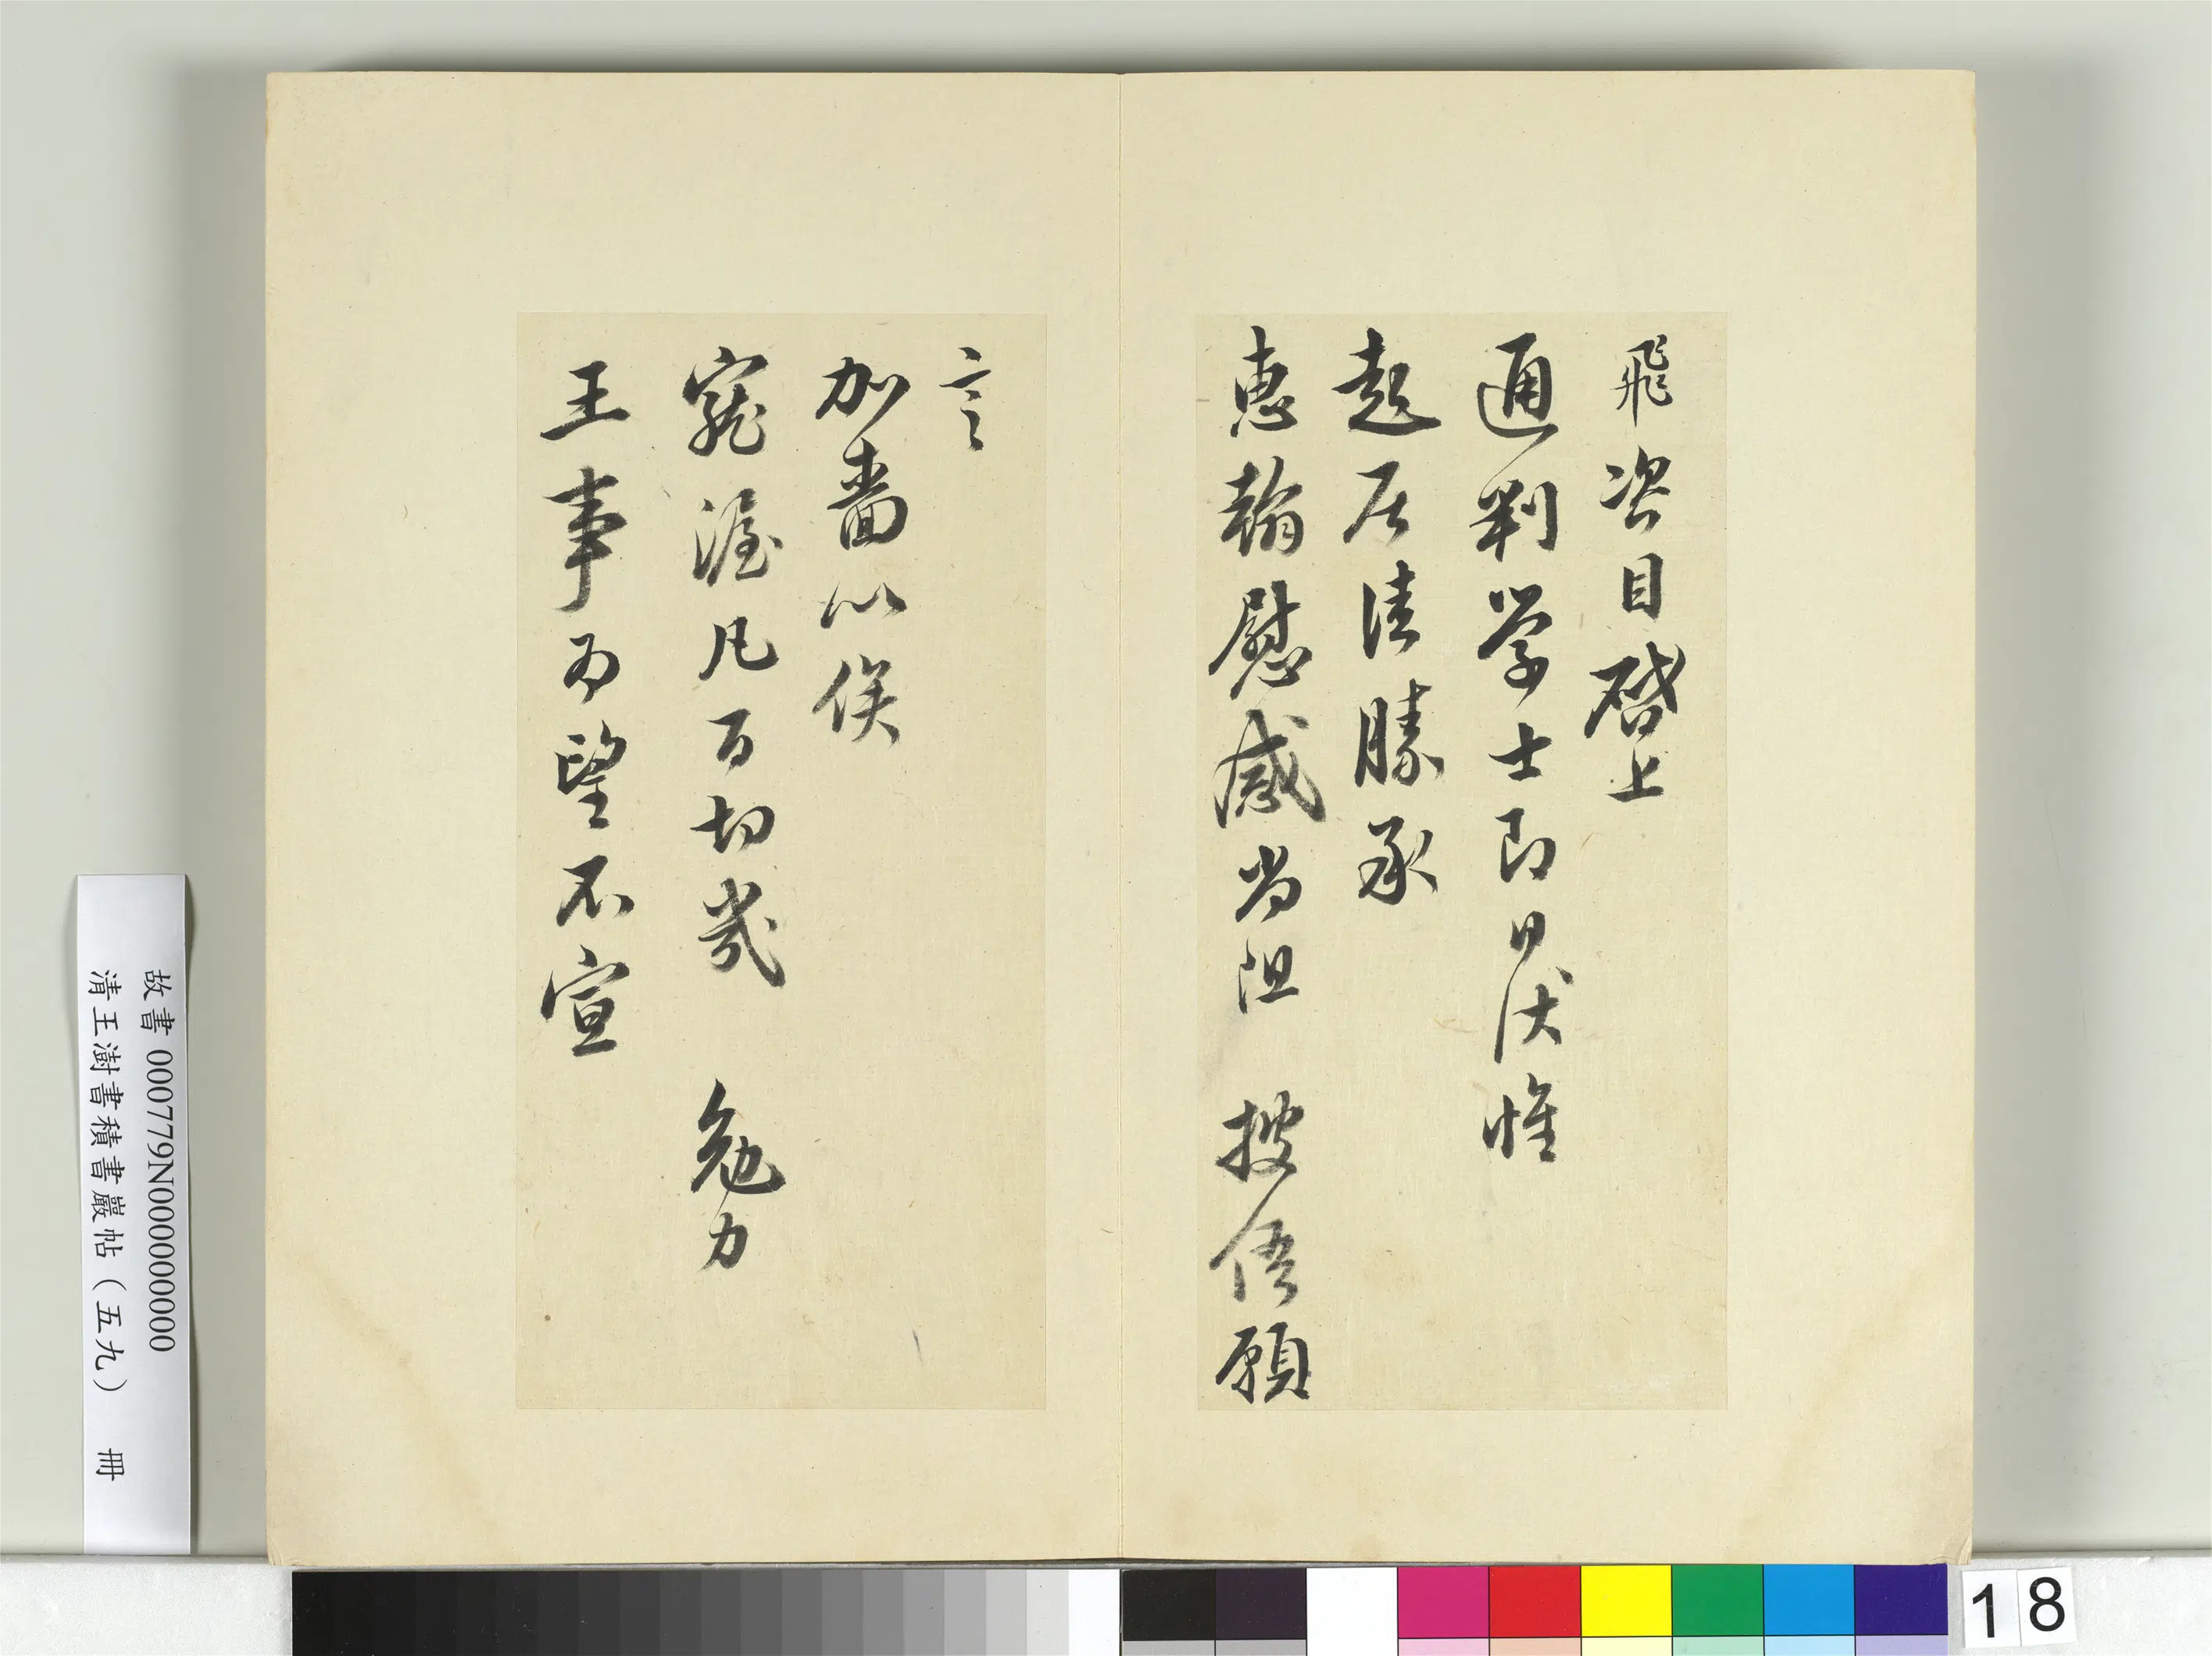 飛咨目啓上
通判学士即日伏惟
起居清勝承
惠翰慰感尚阻 披晤願
言
加嗇以俟
寵渥凡百切幾 勉力
王事為望不宣
故書 000779N000000000
清王澍書積書巖帖（五九） 冊
18